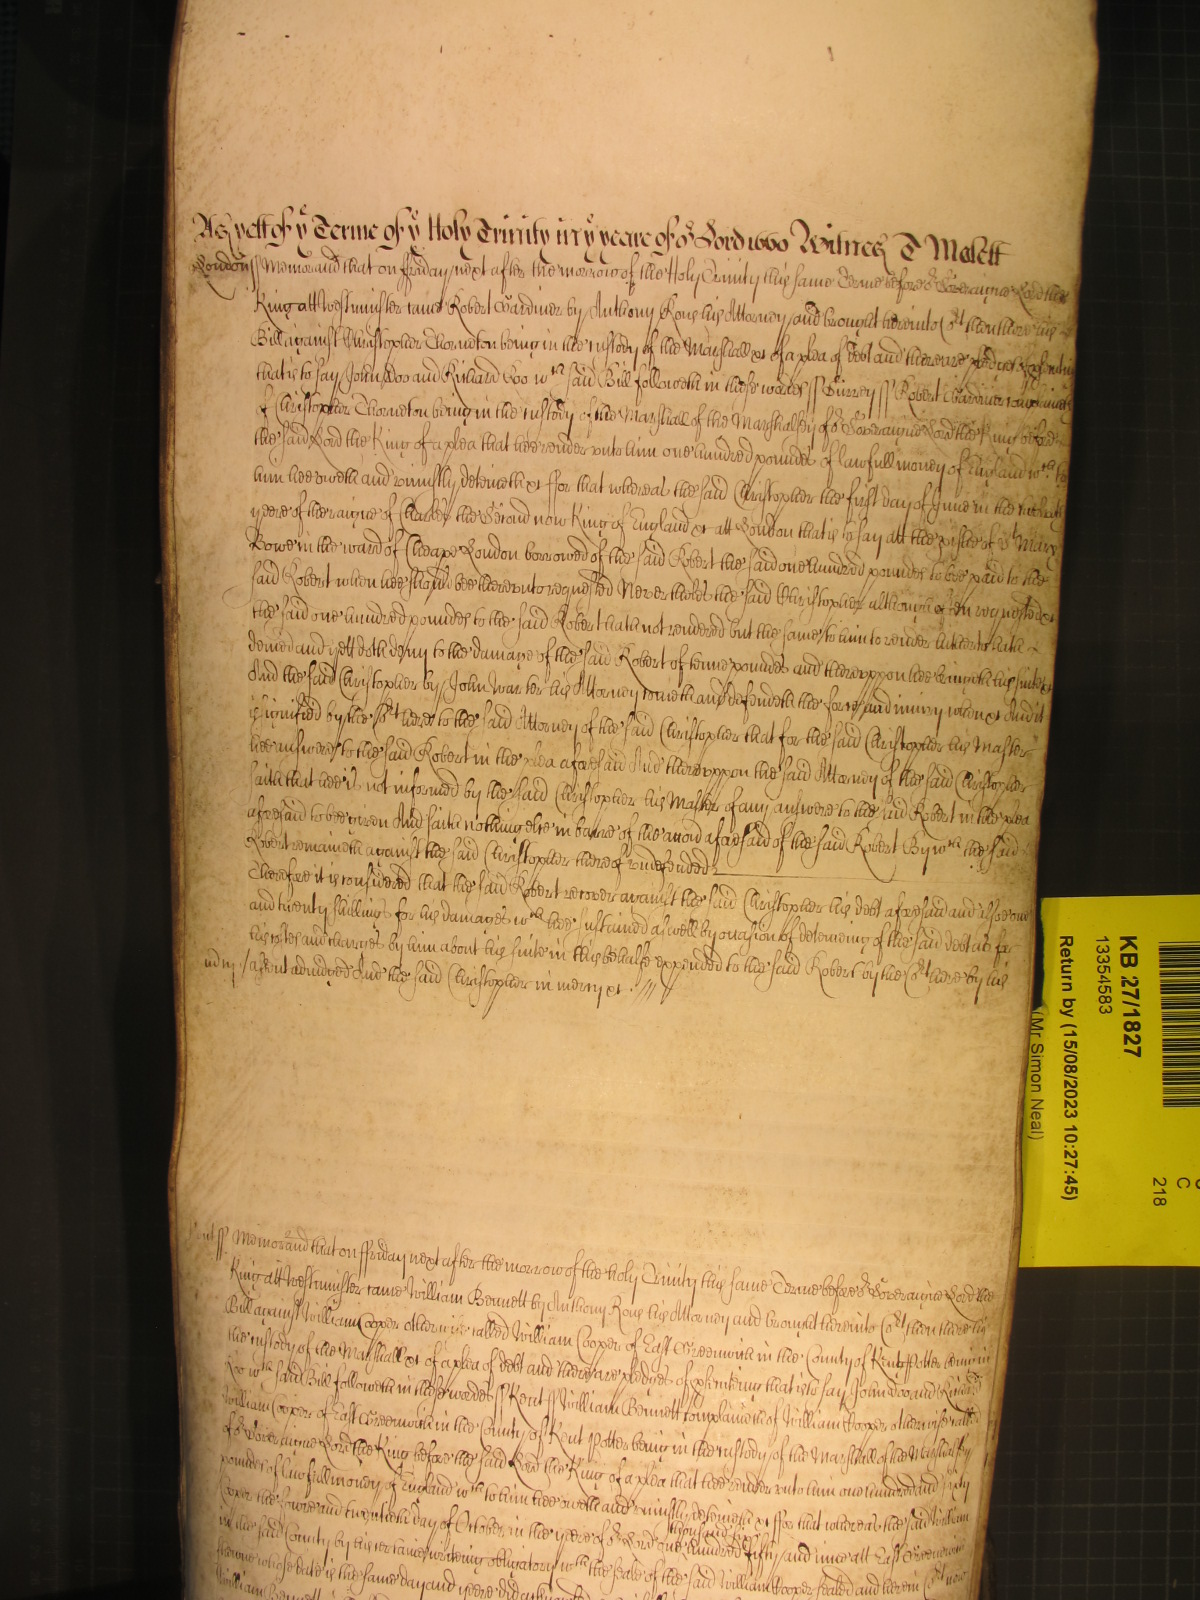 As yett of ye Terme of ye Holy Trinity in ye yeare of or Lord 1660 Witnes T Malett
London ss Memorand that on ffryday next after the morrow of the Holy Trinity this same Terme before or Soveraigne Lord the
King att Westminster came Robert Gardiner by Anthony Rous his Attorney and brought here into Cort then there his
Bill against Christopher Thorneton being in the custody of the Marshall &c of a plea of debt and there are pledges of
that is to say John Doo and Richard Roo wch said Bill followeth in these wordes ss Surrey ss Robert Gardiner complaineth
of Christopher Thorneton being in the custody of the Marshall of the Marshalsey of or Soveraigne Lord the King before
the said Lord the King of a plea that hee render unto him one hundred poundes of lawfull money of England wch to
him hee oweth and uniustly deteineth &c ffor that whereas the said Christopher the first day of June in the
yeere of the raigne of Charles the Second now King of England &c att London that is to say att the pishe of St Mary
Bowe in the ward of Cheape London borrowed of the said Robert the said one hundred poundes to bee paid to the
said Robert when hee should bee thereunto requested Neverthelesse the said Christopher although often requested &c
the said one hundred poundes to the said Robert hath not rendered but the same to him to render hitherto hath
denied and yett doth deny to the damage of the said Robert of tenne poundes and thereuppon hee bringeth his suite &c
And the said Christopher by John Warter his Attorney cometh and defendeth the force and iniury when &c And it
is signified by the Cort here to the said Attorney of the said Christopher that for the said Christopher his Master
hee answere to the said Robert in the plea aforesaid And thereuppon the said Attorney of the said Christopher
saith that hee is not informed by the said Christopher his Master of any answere to the said Robert in the plea
aforesaid to bee given And saith nothing else in barre of the accon aforesaid of the said Robert By wch the said
Robert remaineth against the said Christopher thereof undefended
Therefore it is considered that the said Robert recover against the said Christopher his debt aforesaid and alsoe one
and twenty shillings for his damages wch hee sustained aswell by occasion of deteineing of the said debt as for
his costes and charges by him about his suite in this behalfe expended to the said Robert by the Cort here by his
assent adiudged And the said Christopher in mercy &c
ss Memorand that on ffriday next after the morrow of the Holy Trinity this same Terme before or Soveraigne Lord the
King att Westminster came William Bennett by Anthony Rous his Attorney and brought here into Cort then there his
Bill against William Cooper otherwise called William Cooper of East Greenwich in the County of Kent Potter being in
the custody of the Marshall &c of a plea of debt and there are pledges of psenting that is to say John Doo and Richard
Roo wch said Bill followeth in these wordes ss Kent ss William Bennett complaineth of William Cooper otherwise called
William Cooper of East Greenwich in the County of Kent Potter being in the custody of the Marshall of the Marshalsey
of or Soveraigne Lord the King before the said Lord the King of a plea that hee render unto him one hundred and sixty
poundes of lawfull money of England wch to him hee oweth and uniustly deteineth &c ffor that whereas the said William
Cooper the fowre and twentieth day of October in the yeere of or Lord one thousand six hundred fifty and nine att East Greenwich
in the said County by his certaine writeing obligatory wth the seale of the said William Cooper sealed and
whose date is the same day and yeere did
William Bennett
KB 27/1827
13354583
Return by (15/08/2023 10:27:45)
(Mr Simon Neal)
C
218